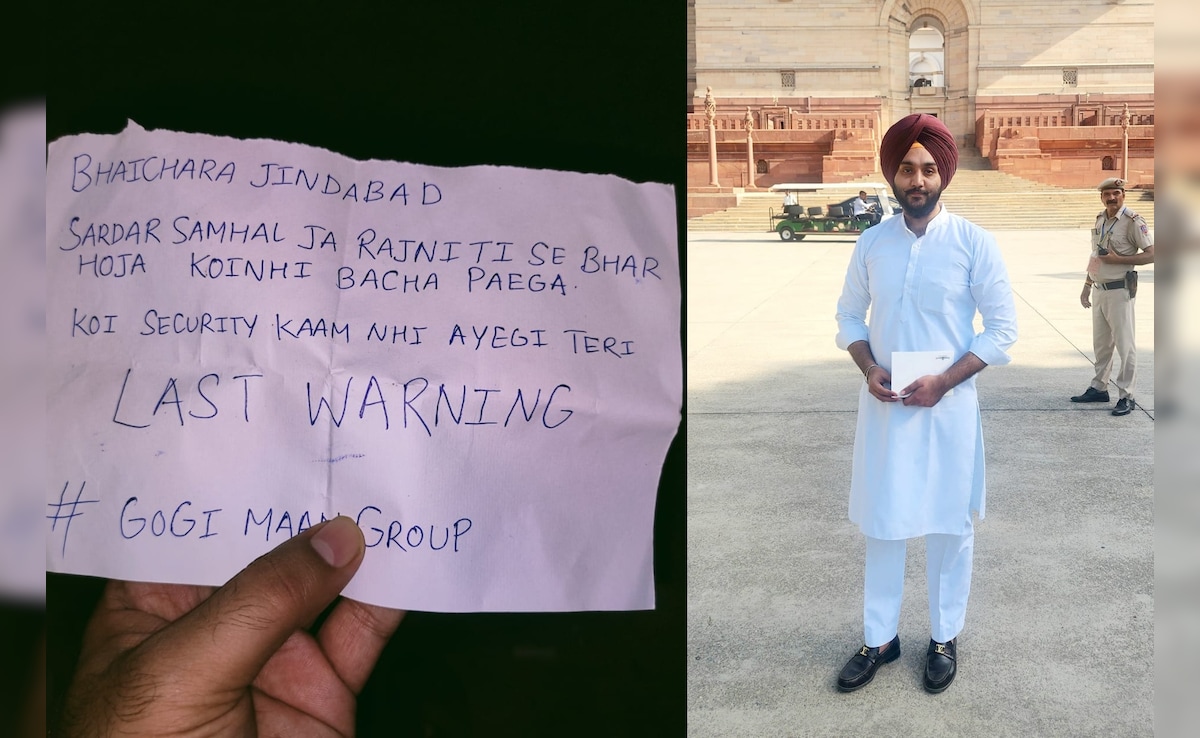 BHAICHARA JINDABAD
SARDAR SAMHAL JA RAJNITI SE BHAR
HOJA KOINHI BACHA PAEGA.
KOI SECURITY KAAM NHI AYEGI TERI
LAST WARNING
# GOGI MAAN GROUP